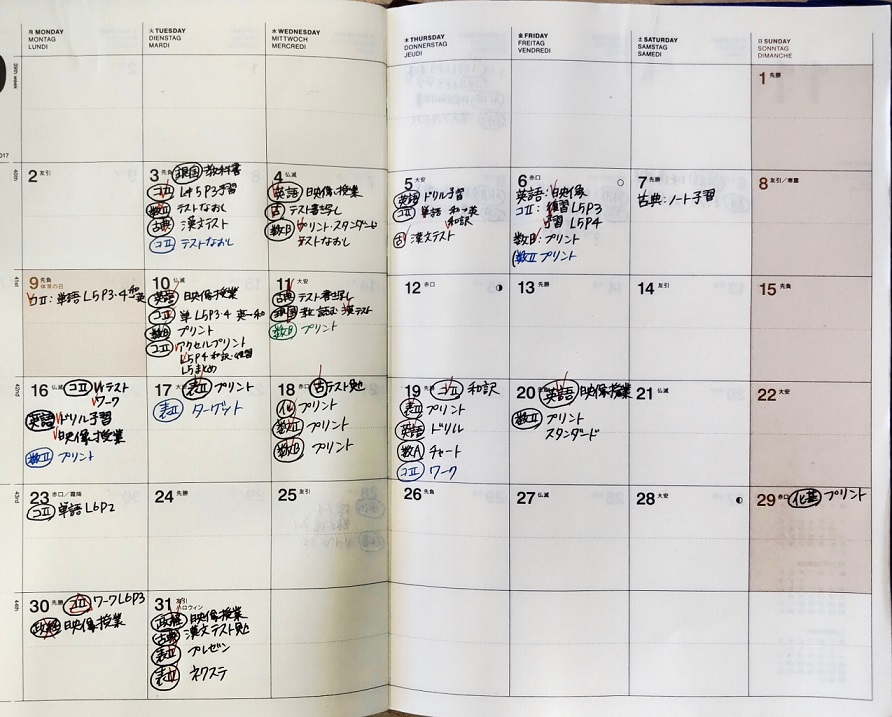 月 MONDAY
MONTAG
LUNDI
火 TUESDAY
DIENSTAG
MARDI
水 WEDNESDAY
MITTWOCH
MERCREDI
木 THURSDAY
DONNERSTAG
JEUDI
金 FRIDAY
FREITAG
VENDREDI
土 SATURDAY
SAMSTAG
SAMEDI
日 SUNDAY
SONNTAG
DIMANCHE
39th week
1 先勝
40th
2 友引
3 先負 現国 教科書
コII L4 5P3 予習
数II テストなおし
古典 漢文テスト
コII テストなおし
4 仏滅
英語 映像授業
古 テスト書き写し
数B プリント・スタンダード
テストなおし
5 大安
英語 ドリル予習
コII 単語 和→英
和訳
古 漢文テスト
6 赤口
英語: 映像
コII: 復習 L5P3
予習 L5P4
数B: プリント
数II プリント
7 先勝
古典: ノート予習
8 友引/寒露
41st
9 先負
体育の日
コII: 単語 L5P3・4 和英
10 仏滅
英語 映像授業
コII 単 L5P3・4 英→和
数B プリント
コII アクセルプリント
L5P4 和訳・復習
L5まとめ
11 大安
古典 テスト書き写し
現国 教 読む 漢テスト
数B プリント
12 赤口
13 先勝
14 友引
15 先負
42nd
16 仏滅 コII テスト
ワーク
英語 ドリル予習
映像授業
数II プリント
17 大安 表II プリント
表II ターゲット
18 赤口 古 テスト勉
化 プリント
数II プリント
数B プリント
19 先勝 コII 和訳
表II プリント
英語 ドリル
数A チャート
コII ワーク
20 英語 映像授業
数II プリント
スタンダード
21 仏滅
22 大安
43rd
23 赤口/霜降
コII 単語 L6P2
24 先勝
25 友引
26 先負
27 仏滅
28 大安
29 赤口 化基 プリント
44th
30 先勝 コII ワークL6P3
政経 映像授業
31 友引
ハロウィン
政経 映像授業
古典 漢文テスト勉
表II プレゼン
表II ネクステ